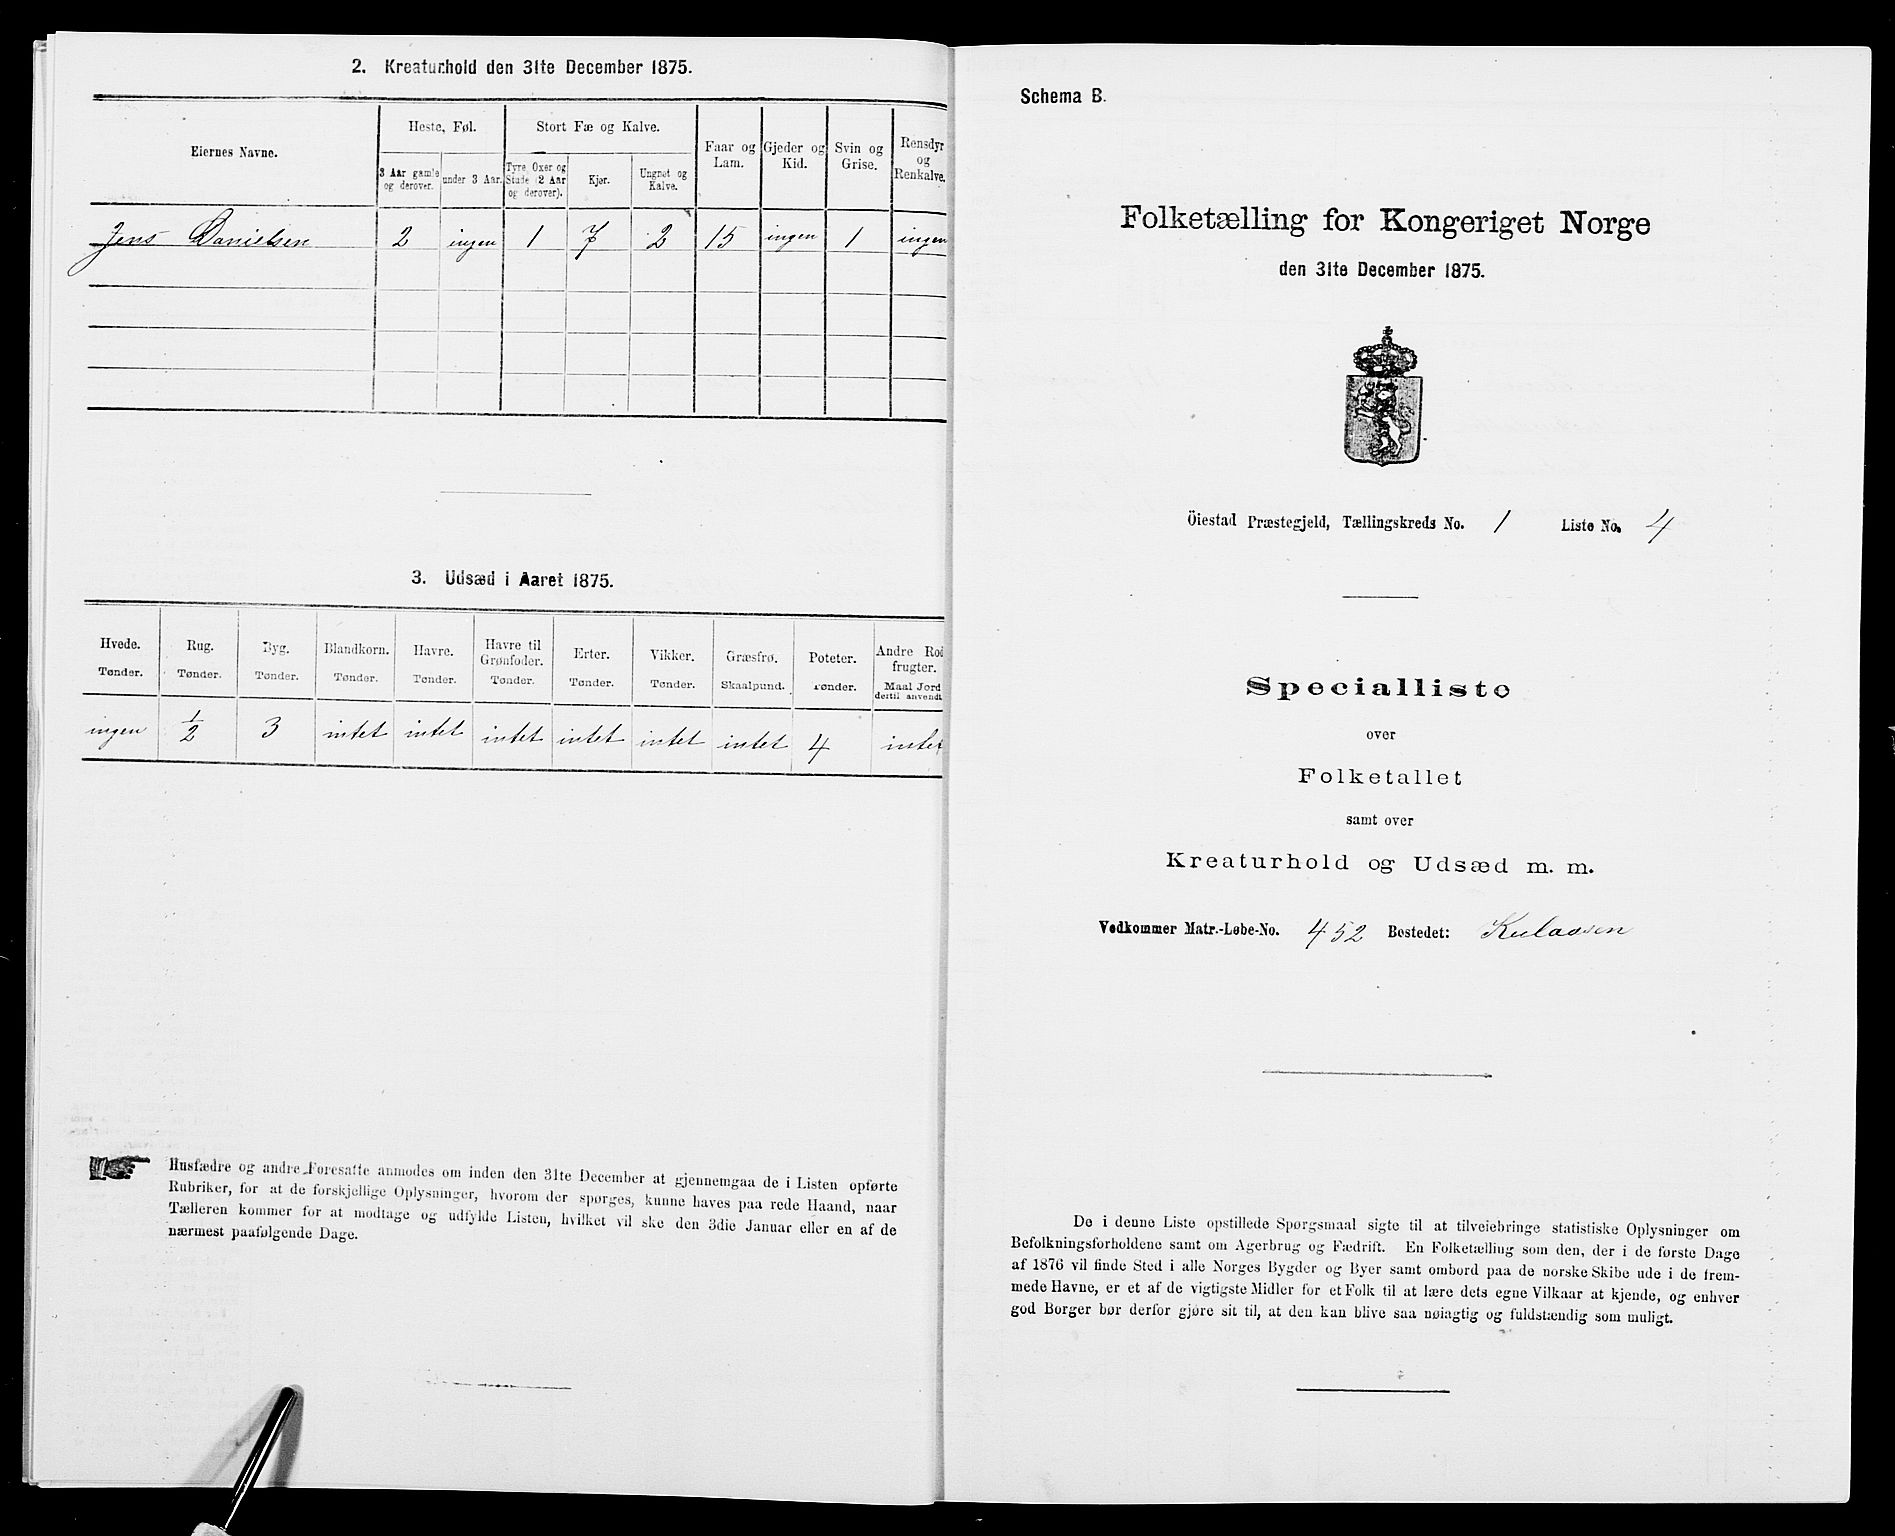 2. Kreaturhold den 31te December 1875.
Eiernes Navne.
Heste, Føl.
Stort Fæ og Kalve.
Faar og Lam.
Gjeder og Kid.
Svin og Grise.
Rensdyr og Renkalve.
3 Aar gamle og derover.
under 3 Aar.
Tyre, Oxer og Stude (2 Aar og derover).
Kjør.
Ungnøt og Kalve.
Jens Danielsen 2 ingen 1 7 2 15 ingen 1 ingen
3. Udsæd i Aaret 1875.
Hvede. Rug. Byg. Blandkorn. Havre. Havre til Grønfoder. Erter. Vikker. Græsfrø. Poteter. Andre Rodfrugter.
Tønder. Tønder. Tønder. Tønder. Tønder. Tønder. Tønder. Tønder. Skaalpund. Tønder. Maal Jord dertil anvendt
ingen 1/2 3 intet intet intet intet intet intet 4 intet
Husfædre og andre Foresatte anmodes om inden den 31te December at gjennemgaa de i Listen opførte
Rubriker, for at de forskjellige Oplysninger, hvorom der spørges, kunne haves paa rede Haand, naar
Tælleren kommer for at modtage og udfylde Listen, hvilket vil ske den 3die Januar eller en af de
nærmest paafølgende Dage.
Schema B.
Folketælling for Kongeriget Norge
den 31te December 1875.
Öiestad Præstegjeld, Tællingskreds No. 1 Liste No. 4
Specialliste
over
Folketallet
samt over
Kreaturhold og Udsæd m. m.
Vedkommer Matr.-Løbe-No. 452 Bostedet: Kulaasen
De i denne Liste opstillede Spørgsmaal sigte til at tilveiebringe statistiske Oplysninger om
Befolkningsforholdene samt om Agerbrug og Fædrift. En Folketælling som den, der i de første Dage
af 1876 vil finde Sted i alle Norges Bygder og Byer samt ombord paa de norske Skibe ude i de frem-
mede Havne, er et af de vigtigste Midler for et Folk til at lære dets egne Vilkaar at kjende, og enhver
god Borger bør derfor gjøre sit til, at den kan blive saa nøiagtig og fuldstændig som muligt.